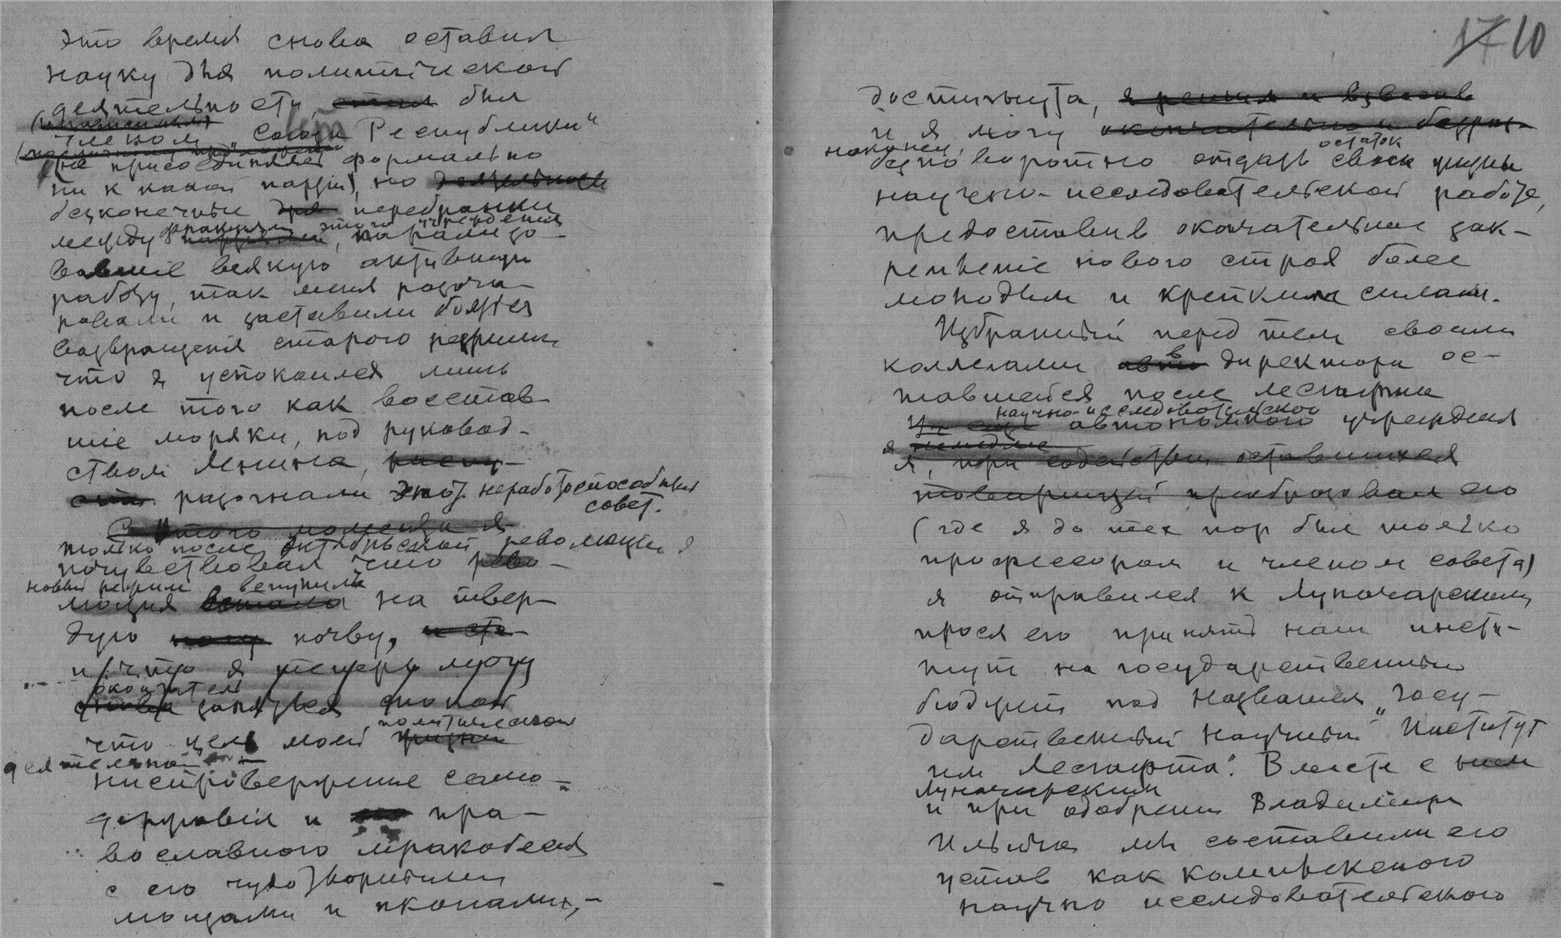 это время снова оставил
науку для политической
деятельности был
членом „Союза Республики“
(не присоединяясь формально
ни к какой партии), но
безконечные для перебранки
между фракциями этого учреждения
, парализо-
вавшие всякую активную
работу, так меня разоча-
ровали и заставили бояться
возвращения старого режима
что я успокоился лишь
после того как восстав-
шие моряки, под руковод-
ством Ленина,
разогнали этот неработоспособный
совет.
С этого момента я
только после Октябрьской революции я
почувствовал что рево-
новый режим вступил
люция встала на твер-
дую почву,
и что я теперь могу
окончател
снова заняться наукой
что цель моей политической
жизни
деятельности
ниспровержение само-
державия и пра-
вославного мракобесия
с его чудотворными
мощами и иконами,-
17 10
достигнута, я решил и
и я могу окончательно и безвоз-
наконец, остаток
бесповоротно отдать свою жизнь
научно-исследовательской работе,
предоставив окончательное зак-
репление нового строя более
молодым и крепким силам.
Избранный перед тем своими
коллегами в директора ос-
тавшегося после Лесгафта
научно-исследовательского
автономного учреждения
я, при содействии оставшихся
товарищей преобразовал его
(где я до тех пор был только
профессором и членом совета)
я отправился к Луначарскому
прося его принять наш инсти-
тут на государственный
бюджет под названием „Госу-
дарственный Научный Институт
им Лесгафта“. Вместе с ним
Луначарским
и при одобрении Владимира
Ильича мы составили его
устав как коллективного
научно исследовательского